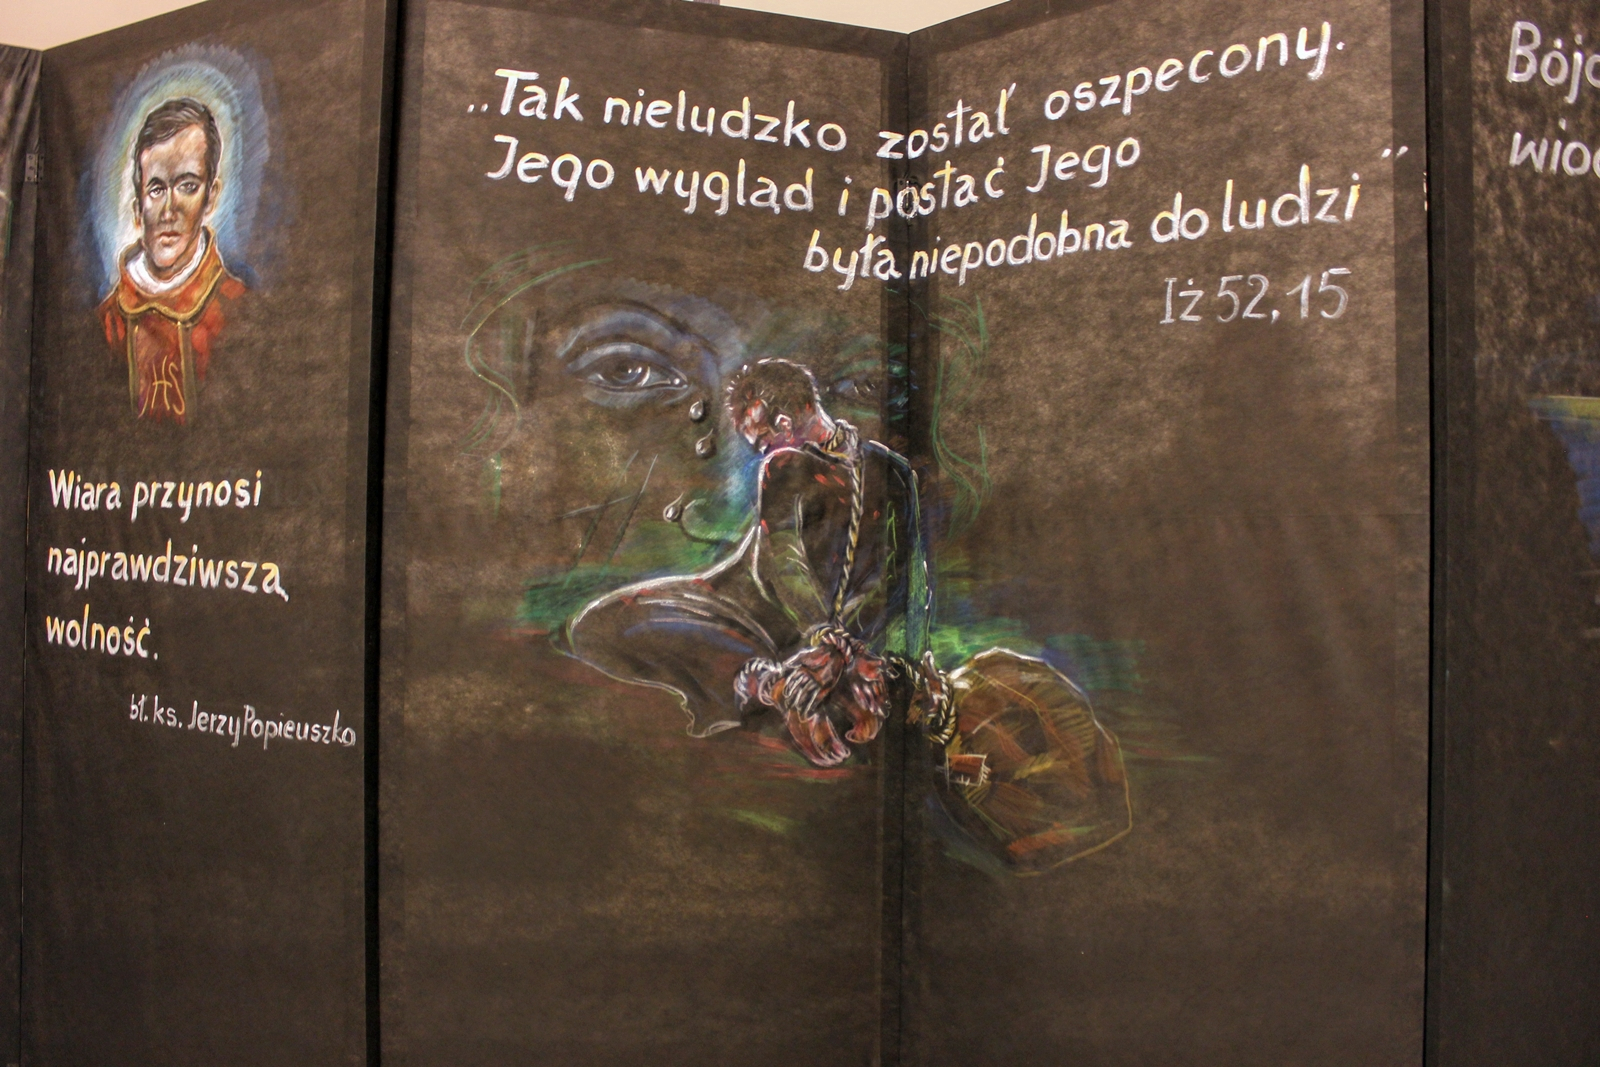 HS
Wiara przynosi
najprawdziwszą
wolność.
bł. ks. Jerzy Popiełuszko
„Tak nieludzko został oszpecony.
Jego wygląd i postać Jego
była niepodobna do ludzi”
Iż 52, 15